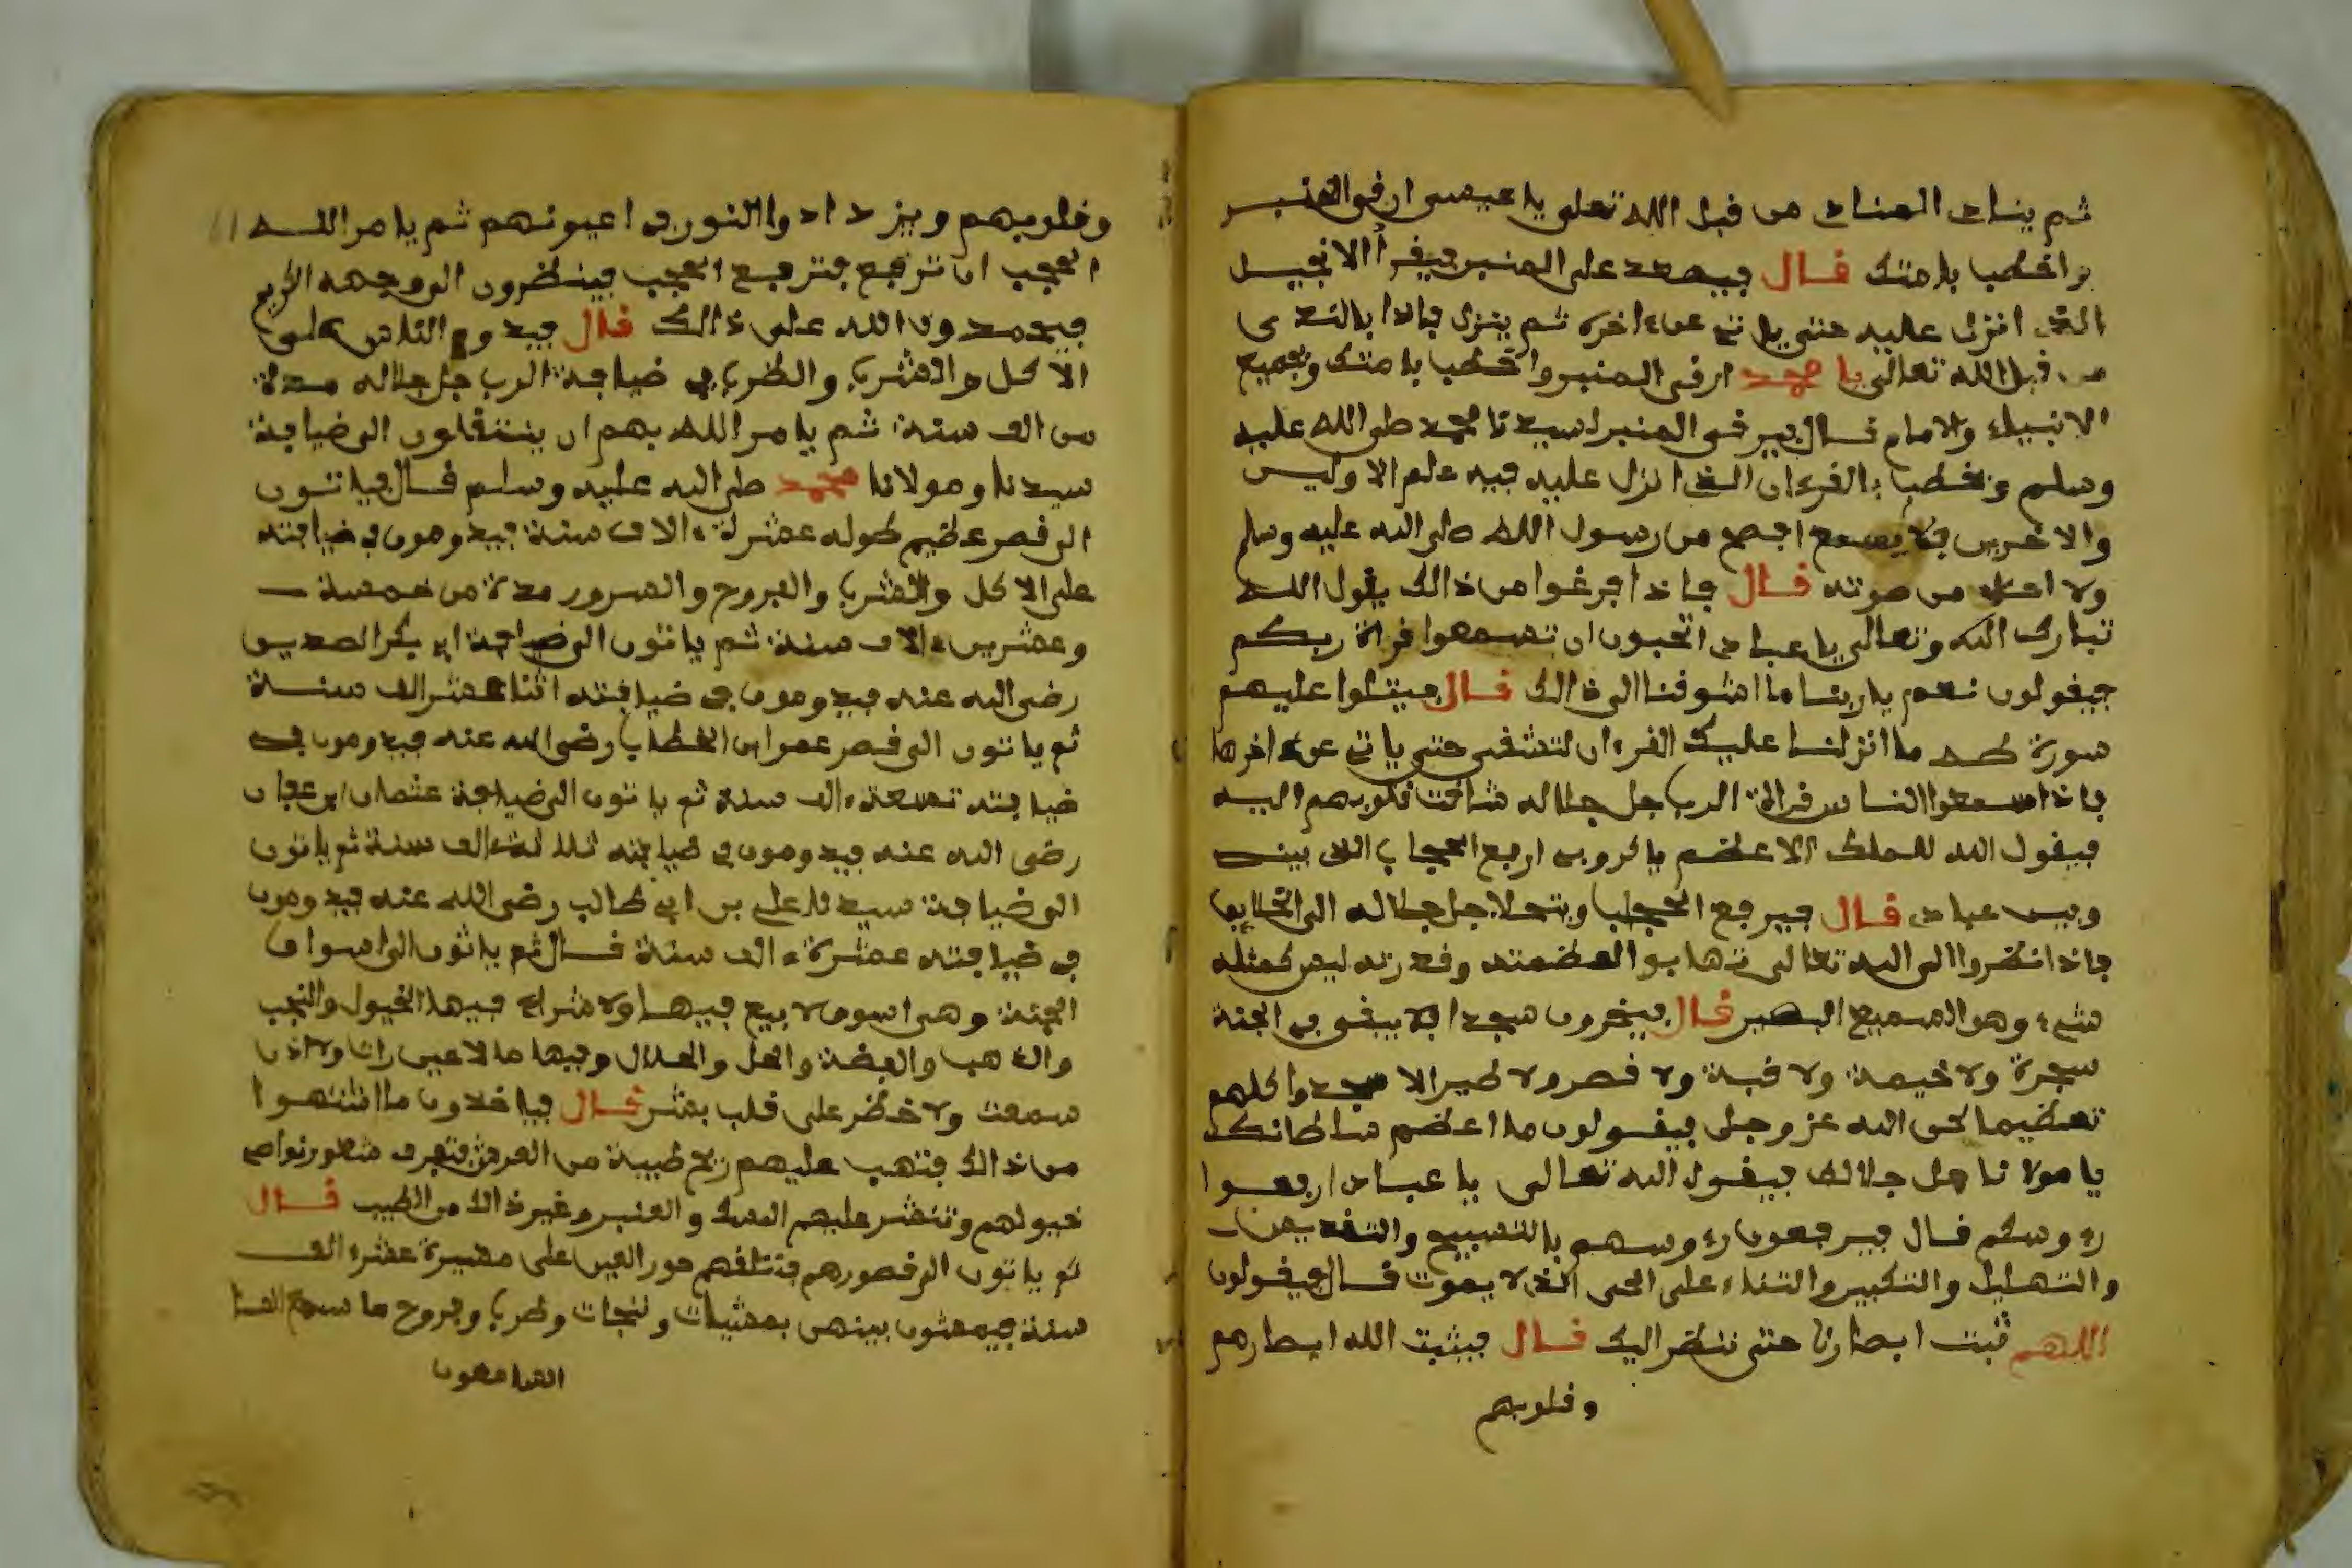 ثم يناد المناد من قبل الله تعلى يا عيسى ارق المنبر
واخطب بامتك قال فيصعد على المنبر فيقرأ الانجيل
الذى انزل عليه حتى ياتى على ءاخره ثم ينزل فاذا بالندى
من قبل الله تعالى يا محمد ارق المنبر واخطب بامتك وبجميع
الانبياء والامام قال فيرقى المنبر سيدنا محمد صلى الله عليه
وسلم ويخطب بالقرءان الذى انزل عليه فيه علم الاوليس
والاخرين فلا يسمع افصح من رسول الله صلى الله عليه وسلم
ولا احلى من صوته قال فاذا فرغوا من ذالك يقول الله
تبارك الله وتعالى يا عباد اتحبون ان تسمعوا قراة ربكم
فيقولون نعم يا ربنا ما اشوقنا الى ذالك قال فيتلوا عليهم
سورة طه ما انزلنا عليك القرءان لتشقى حتى ياتى على اخرها
فاذا سمعوا الناس قراة الرب جل جلاله شاقت قلوبهم اليه
فيقول الله للملك الاعظم يا كروبى ارفع الحجاب الذى بينى
وبين عباد قال فيرفع الحجاب ويتجلا جل جلاله الى الخلايق
فاذا نظروا الى الله تعالى تهابوا لعظمته وقدرته ليس كمثله
شىء وهو السميع البصير قال فيخرون سجدا فلا يبقى فى الجنة
سجرة ولا خيمة ولا قبة ولا قصر ولا طير الا سجدوا كلهم
تعظيما لحق الله عز وجل فيقولون ما اعظم سلطانك
يا مولانا جل جلالك فيقول الله تعالى يا عباد ارفعوا
رءوسكم قال فيرفعون رءوسهم بالتسبيح والتقديس
والتهليل والتكبير والثناء على الحى الذى لا يموت قال فيقولون
اللهم ثبت ابصارنا حتى ننظر اليك قال فيثبت الله ابصارهم
وقلوبهم
وقلوبهم ويزدادوا النور فى اعيونهم ثم يامر الله
الحجب ان ترفع فترفع الحجب فينظرون الى وجهه الكريم
فيحمدون الله على ذالك قال فيدوم الناس على
الاكل والشرب والطرب فى ضيافة الرب جل جلاله مدة
من الف سنة ثم يامر الله بهم ان ينتقلون الى ضيافة
سيدنا ومولانا محمد صلى الله عليه وسلم قال فياتون
الى قصر عظيم طوله عشرة ءالاف سنة فيدومون فى ضيافته
على الاكل والشرب والفروح والسرور مدة من خمسة
وعشرين ءالاف سنة ثم ياتون الى ضيافة ابى بكر الصديق
رضى الله عنه فيدومون فى ضيافته اثنا عشر الف سنة
ثم ياتون الى قصر عمر ابن الخطاب رضى الله عنه فيدومون فى
ضيافته تسعة ءالف سنة ثم ياتون الى ضيافة عثمان ابن عفان
رضى الله عنه فيدومون فى ضيافته ثلاثة ءالف سنة ثم ياتون
الى ضيافة سيدنا على بن ابى طالب رضى الله عنه فيدومون
فى ضيافته عشرة ءالف سنة قال ثم ياتون الى اسواق
الجنة وهى اسوق لا بيع فيها ولا شراء فيها الخيول والنجب
والذهب والفضة والحل والحلال وفيها ما لا عين رات ولا اذن
سمعت ولا خطر على قلب بشر قال فياخذون ما اشتهوا
من ذالك فتهب عليهم ريح طيبة من العرش فتعرف شعور نواصى
خيولهم وتنشر عليهم المسك والعنبر وغير ذالك من الطيب قال
ثم ياتون الى قصورهم فتتلقهم حور العين على مسيرة عشرء الف
سنة فيمشون بينهن بمشيات ونتجات وطرب وفروح ما سمع السا
السامعون